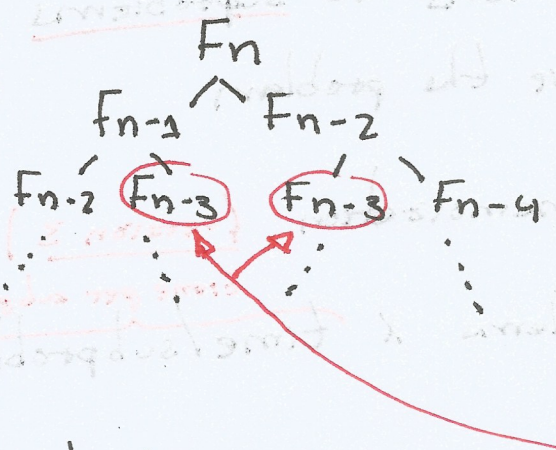 Fn
Fn-1 Fn-2
Fn-2 Fn-3 Fn-3 Fn-4